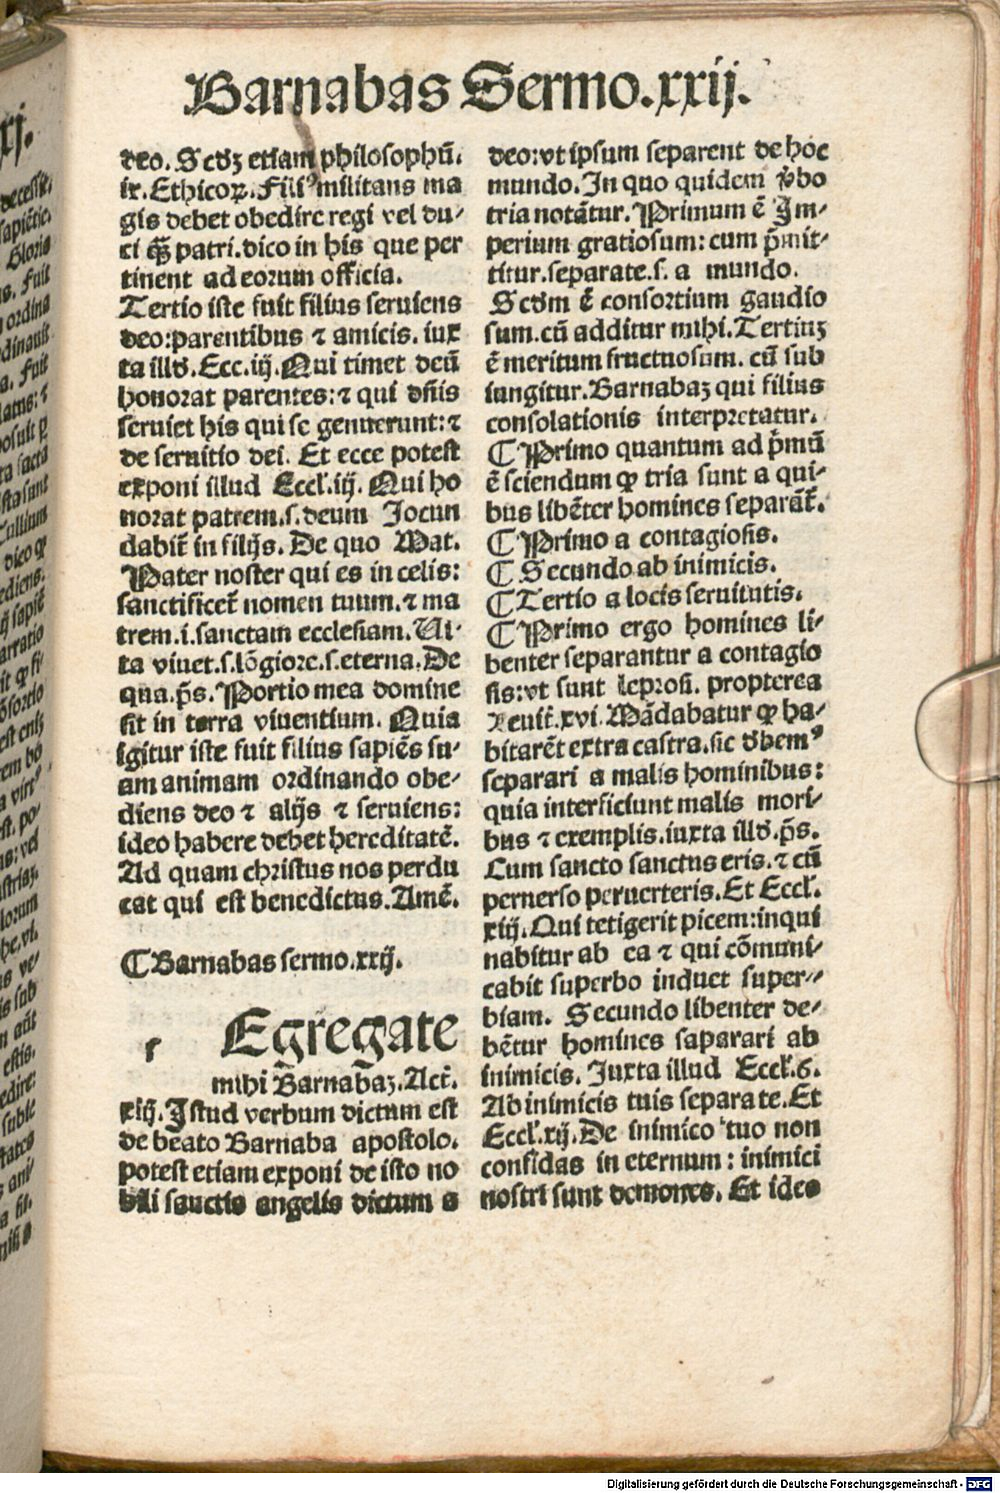 Barnabas Sermo.xxij.
deo. Scdʒ etiam philosophū.
ix. Ethicoꝝ. Filiꝰ militans ma
gis debet obedire regi vel du-
ci q̄ꝫ patri. dico in his que per
tinent ad eorum officia.
Tertio iste fuit filius seruiens
deo:parentibus ⁊ amicis. iux
ta illd̛.Ecc.iij.Qui timet deū
honorat parentes:⁊ qui dn̄is
seruiet his qui se genuerunt:⁊
de seruitio dei. Et ecce potest
exponi illud Eccl̛.iij. Qui ho
norat patrem.s.deum Jocun
dabit̄ in filijs. De quo Mat.
Pater noster qui es in celis:
sanctificet̄ nomen tuum.⁊ ma
trem.i.sanctam ecclesiam.Ui-
ta viuet.s.lōgiore.s.eterna.De
qua.p̄s.Portio mea domine
sit in terra viuentium. Quia
igitur iste fuit filius sapiēs su-
am animam ordinando obe-
diens deo ⁊ alijs ⁊ seruiens:
ideo habere debet hereditatē.
Ad quam christus nos perdu
cat qui est benedictus.Amē.
¶Barnabas sermo.xxij.
s Egregate
mihi Barnabaʒ.Act̄.
xiij.Istud verbum dictum est
de beato Barnaba apostolo.
potest etiam exponi de isto no
bili sanctis angelis dictum a
deo:vt ipsum separent de hoc
mundo.In quo quidem v̄bo
tria notātur.Primum ē Im-
perium gratiosum:cum p̄mit-
titur.separate.s.a mundo.
Scdm ē consortium gaudio
sum.cū additur mihi.Tertiuʒ
ē meritum fructuosum.cū sub
iungitur.Barnabaʒ qui filius
consolationis interpretatur.
¶Primo quantum ad p̄mū
ē sciendum ꝙ tria sunt a qui-
bus libēter homines separāt̄.
¶Primo a contagiosis.
¶Secundo ab inimicis.
¶Tertio a locis seruitutis.
¶Primo ergo homines li-
benter separantur a contagio
sis:vt sunt leprosi. propterea
Leuit̄.xvi.Mādabatur ꝙ ha-
bitarēt extra castra.sic d̛bemꝰ
separari a malis hominibus:
quia interficiunt malis mori-
bus ⁊ exemplis.iuxta illd̛.p̄s.
Cum sancto sanctus eris.⁊ cū
peruerso peruerteris.Et Eccl̛.
xiij.Qui tetigerit picem:inqui
nabitur ab ea ⁊ qui cōmuni-
cabit superbo induet super-
biam. Secundo libenter de-
bētur homines saparari ab
inimicis. Juxta illud Eccl̛.6.
Ab inimicis tuis separate.Et
Eccl̛.xij.De inimico tuo non
confidas in eternum: inimici
nostri sunt demones. Et ideo
Digitalisierung gefördert durch die Deutsche Forschungsgemeinschaft - DFG